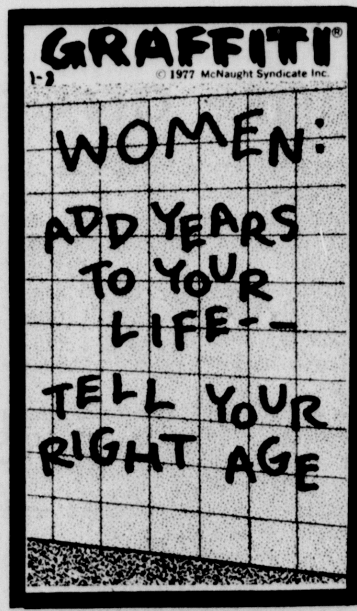 GRAFFITI®
1-3 © 1977 McNaught Syndicate Inc.
WOMEN:
ADD YEARS
TO YOUR
LIFE--
TELL YOUR
RIGHT AGE